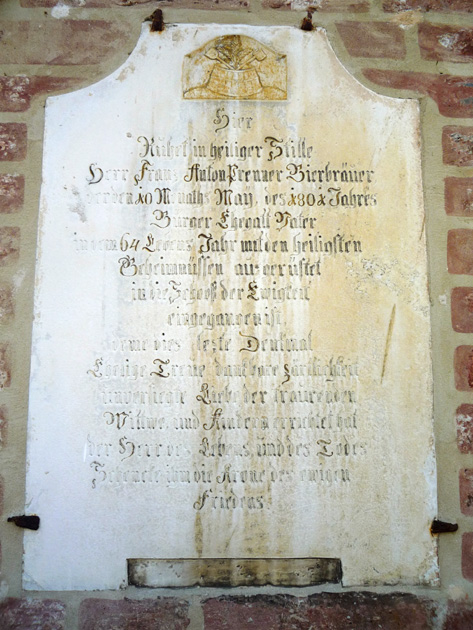 Hier
Ruhet in heiliger Stille
Herr Franz Anton Prenner Bierbräuer
10 Monaths May, des 1801 Jahrs
Burger Ehegatt Vater
in dem 64 Lebens Jahr mit den heiligsten
Geheimnüssen aus gerüstet
in die Schooß der Ewigkeit
eingegangen ist
dies lezte Denkmal
Treue dankbare Zärtlichkeit
Liebe der traurenden
Wittwe, und Kinder errichtet hat
der Herr des Lebens und des Todes
Schencke ihm die Krone des ewigen
Friedens